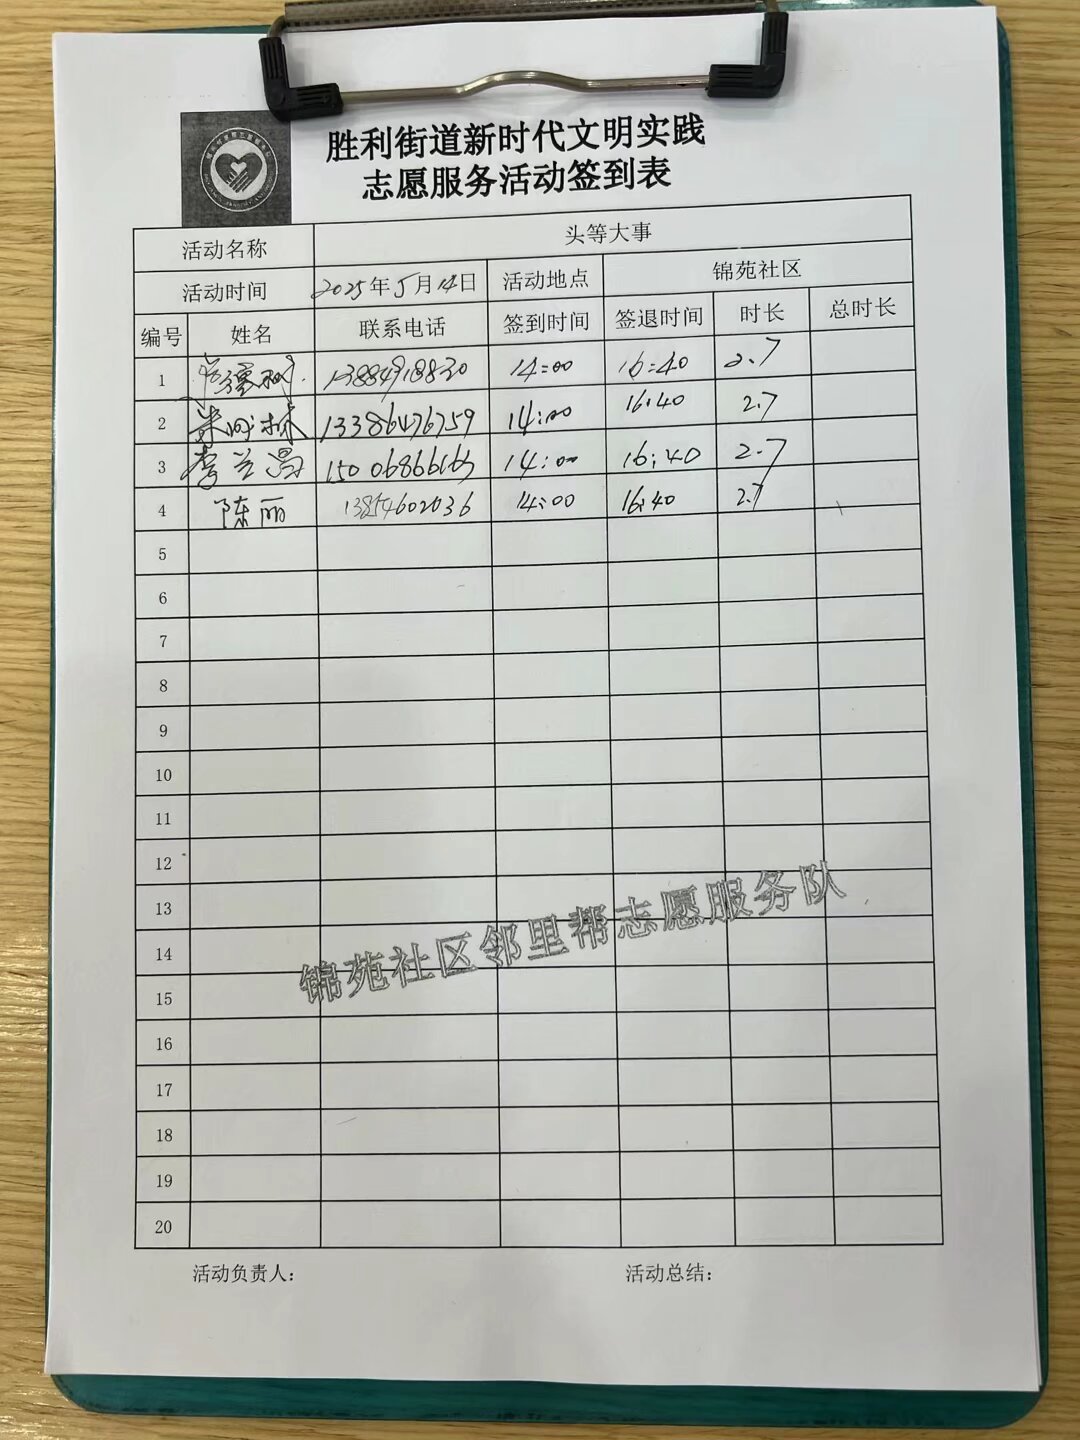 胜利街道新时代文明实践
志愿服务活动签到表
活动名称 头等大事
活动时间 2025年5月14日 活动地点 锦苑社区
编号 姓名 联系电话 签到时间 签退时间 时长 总时长
1 13884918830 14:00 16:40 2.7
2 13386476759 14:00 16:40 2.7
3 李兰昌 15006866163 14:00 16:40 2.7
4 陈丽 13854602036 14:00 16:40 2.7
5
6
7
8
9
10
11
12
13
14
15
16
17
18
19
20
锦苑社区邻里帮志愿服务队
活动负责人： 活动总结：